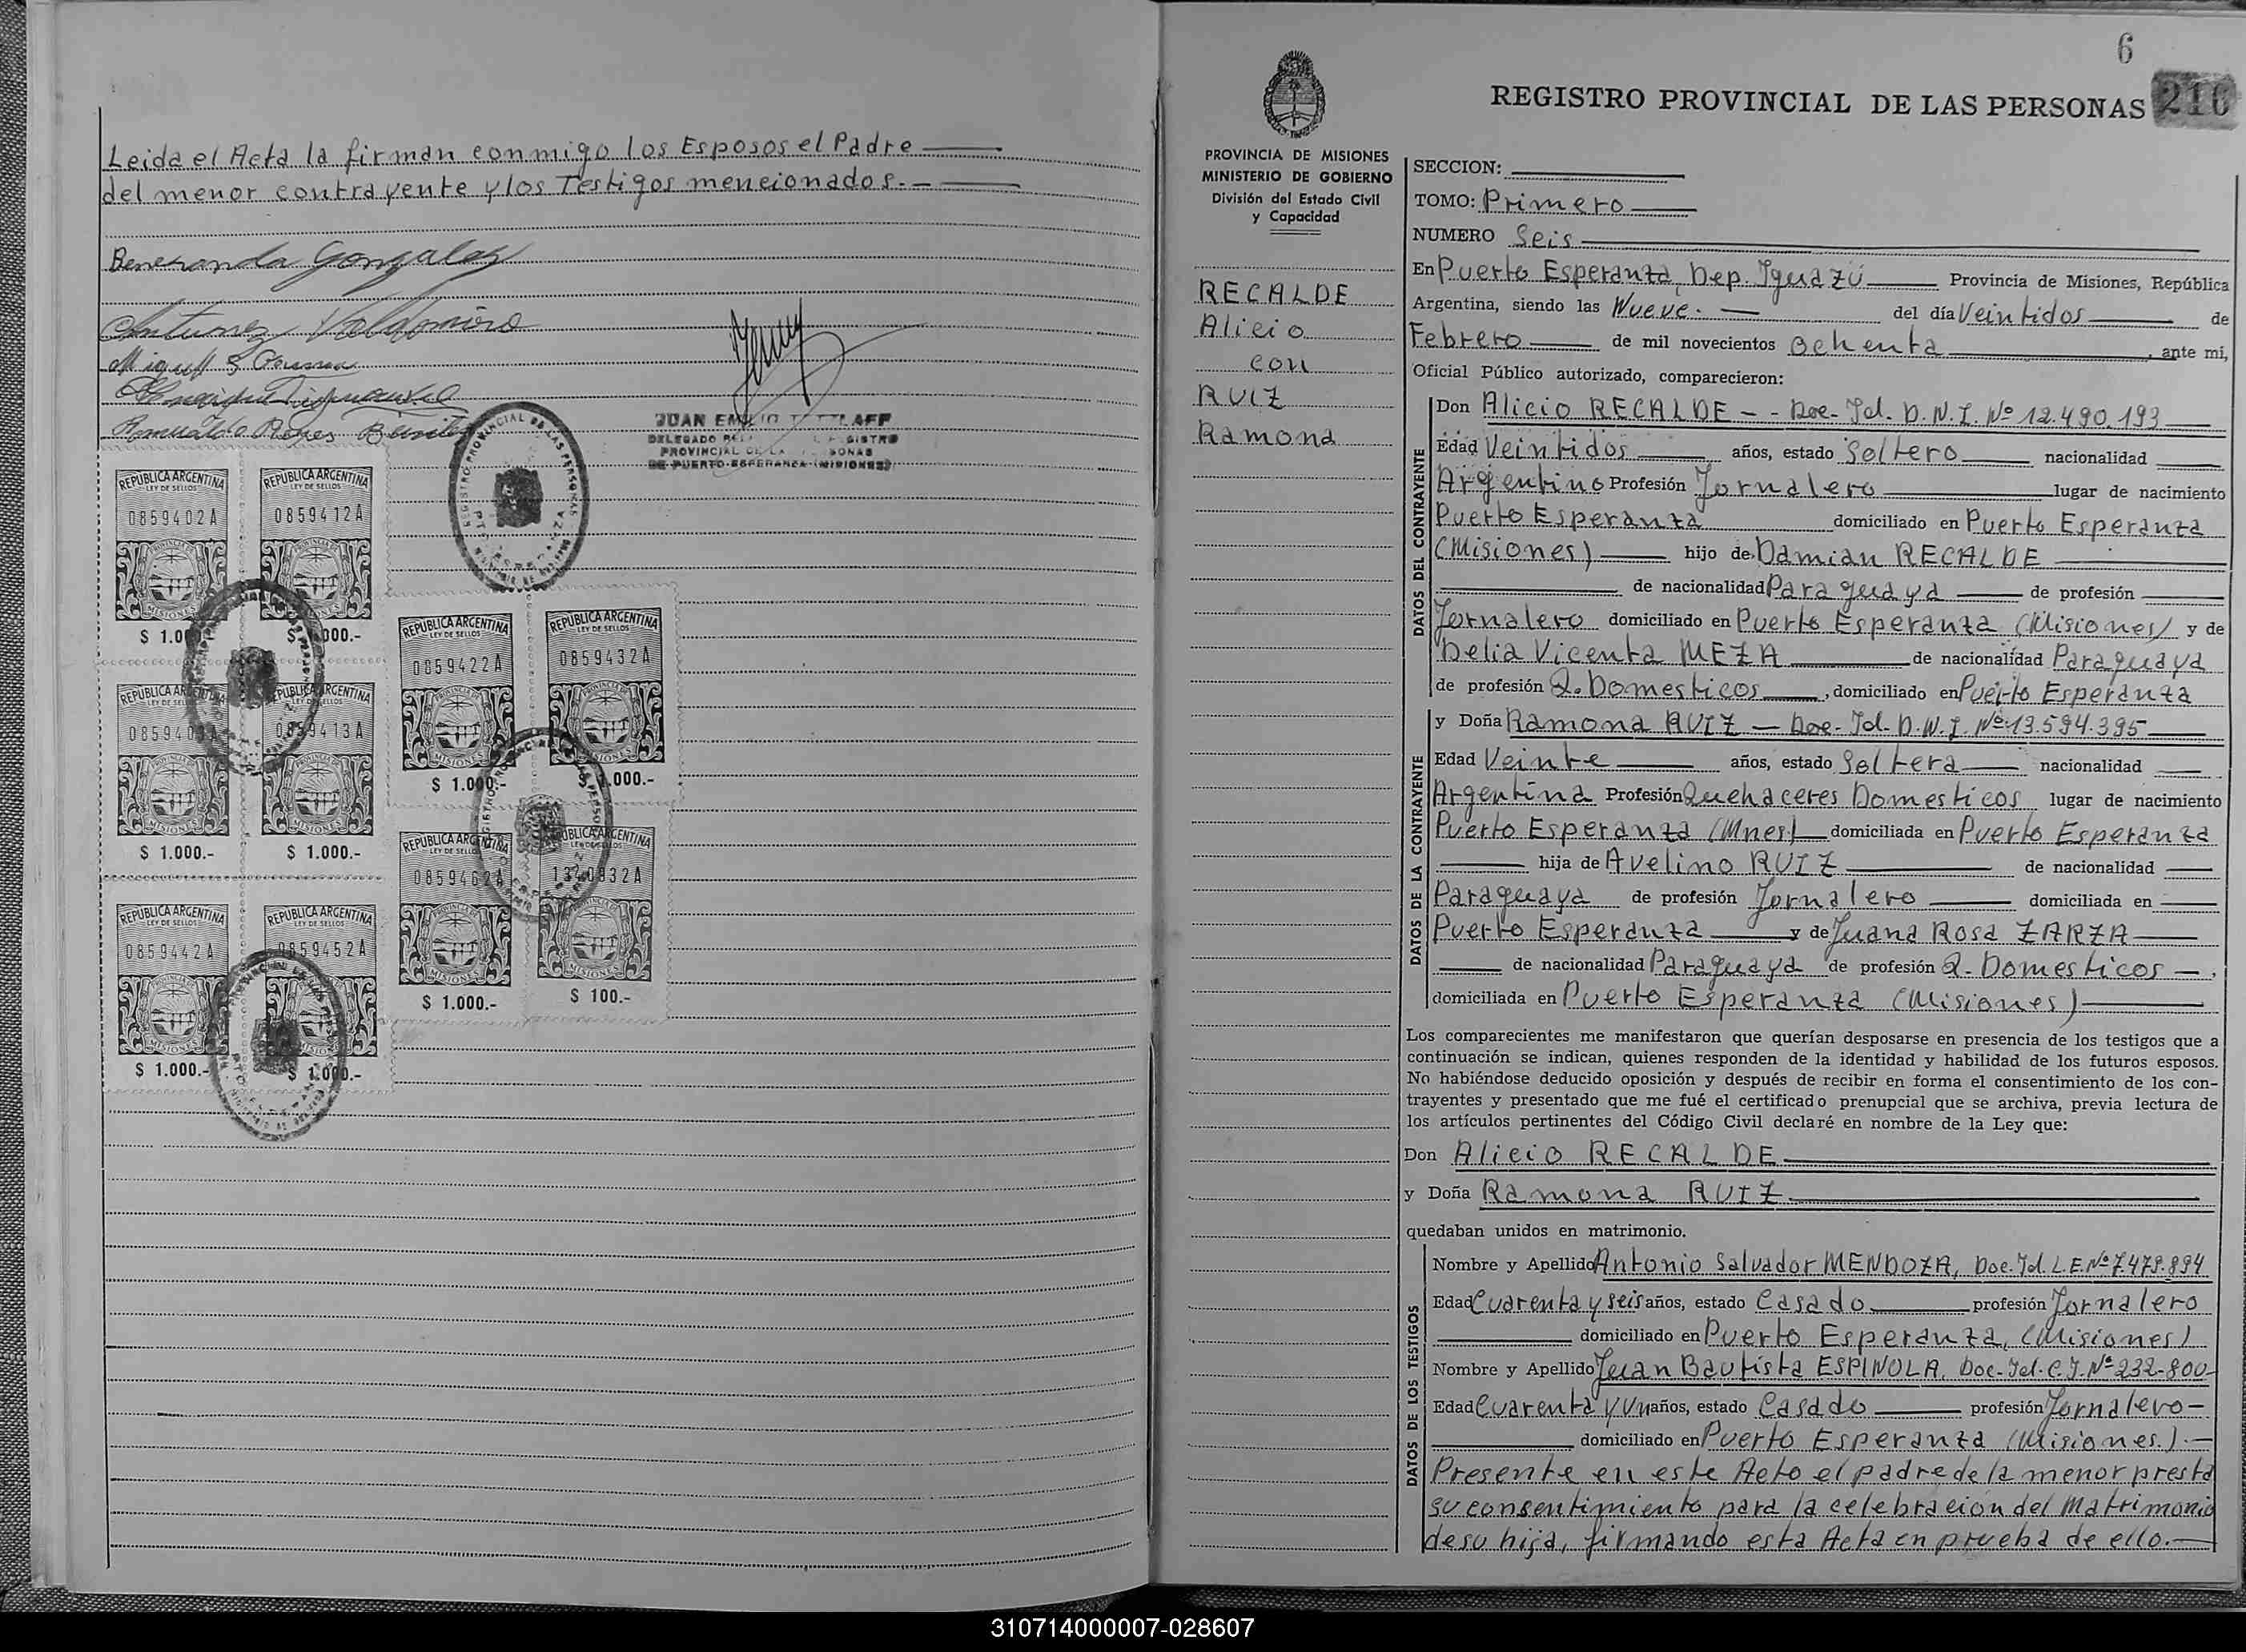 Leida el Acta la firman conmigo los Esposos el Padre
del menor contrayente y los Testigos mencionados.-
Beneranda Gonzalez
Antunez Valdomiro
Romualdo Reyes Benitez
JUAN EMILIO
DELEGADO
PROVINCIAL DE LAS PERSONAS
DE PUERTO ESPERANZA (MISIONES)
REGISTRO PROVINCIAL DE LAS PERSONAS
REPUBLICA ARGENTINA REPUBLICA ARGENTINA
LEY DE SELLOS LEY DE SELLOS
0859402A 0859412A
MISIONES MISIONES
$ 1.000.- $ 1.000.-
REPUBLICA ARGENTINA REPUBLICA ARGENTINA
LEY DE SELLOS LEY DE SELLOS
0859422A 0859432A
$ 1.000.- $ 1.000.-
REPUBLICA ARGENTINA REPUBLICA ARGENTINA
LEY DE SELLOS LEY DE SELLOS
0859403A 0859413A
MISIONES MISIONES
$ 1.000.- $ 1.000.-
REPUBLICA ARGENTINA REPUBLICA ARGENTINA
LEY DE SELLOS LEY DE SELLOS
0859462A 1340832A
MISIONES MISIONES
$ 1.000.- $ 100.-
REPUBLICA ARGENTINA REPUBLICA ARGENTINA
LEY DE SELLOS LEY DE SELLOS
0859442A 0859452A
MISIONES MISIONES
$ 1.000.- $ 1.000.-
6
REGISTRO PROVINCIAL DE LAS PERSONAS 210
PROVINCIA DE MISIONES
MINISTERIO DE GOBIERNO
División del Estado Civil
y Capacidad
RECALDE
Alicio
con
RUIZ
Ramona
SECCION:
TOMO: Primero
NUMERO Seis
En Puerto Esperanza, Dep. Iguazú Provincia de Misiones, República
Argentina, siendo las Nueve.- del día Veintidos de
Febrero de mil novecientos Ochenta, ante mi,
Oficial Público autorizado, comparecieron:
DATOS DEL CONTRAYENTE
Don Alicio RECALDE - - Doc- Id- D.N.I. Nº 12.490.193
Edad Veintidos años, estado Soltero nacionalidad
Argentino Profesión Jornalero lugar de nacimiento
Puerto Esperanza domiciliado en Puerto Esperanza
(Misiones) hijo de Damian RECALDE
de nacionalidad Paraguaya de profesión
Jornalero domiciliado en Puerto Esperanza (Misiones) y de
Delia Vicenta MEZA de nacionalidad Paraguaya
de profesión Q. Domesticos, domiciliado en Puerto Esperanza
DATOS DE LA CONTRAYENTE
y Doña Ramona RUIZ - Doc- Id- D.N.I. Nº 13.594.395
Edad Veinte años, estado Soltera nacionalidad
Argentina Profesión Quehaceres Domesticos lugar de nacimiento
Puerto Esperanza (Mnes) domiciliada en Puerto Esperanza
hija de Avelino RUIZ de nacionalidad
Paraguaya de profesión Jornalero domiciliada en
Puerto Esperanza y de Juana Rosa ZARZA
de nacionalidad Paraguaya de profesión Q- Domesticos -,
domiciliada en Puerto Esperanza (Misiones)
Los comparecientes me manifestaron que querían desposarse en presencia de los testigos que a
continuación se indican, quienes responden de la identidad y habilidad de los futuros esposos.
No habiéndose deducido oposición y después de recibir en forma el consentimiento de los con-
trayentes y presentado que me fué el certificado prenupcial que se archiva, previa lectura de
los artículos pertinentes del Código Civil declaré en nombre de la Ley que:
Don Alicio RECALDE
y Doña Ramona RUIZ
quedaban unidos en matrimonio.
DATOS DE LOS TESTIGOS
Nombre y Apellido Antonio Salvador MENDOZA, Doc. Id. L.E. Nº 7.479.894
Edad Cuarenta y seis años, estado Casado profesión Jornalero
domiciliado en Puerto Esperanza, (Misiones)
Nombre y Apellido Juan Bautista ESPINOLA, Doc- Id- C.I. Nº 232-800
Edad Cuarenta y Un años, estado Casado profesión Jornalero -
domiciliado en Puerto Esperanza (Misiones).-
Presente en este Acto el padre de la menor presta
su consentimiento para la celebración del Matrimonio
de su hija, firmando esta Acta en prueba de ello.-
310714000007-028607